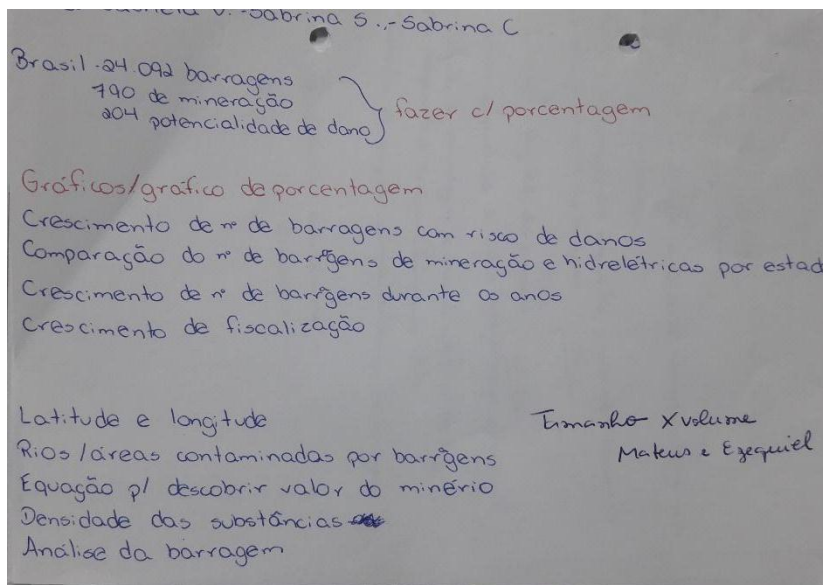 V.-Sabrina S.-Sabrina C
Brasil 24.092 barragens
790 de mineração
204 potencialidade de dano
fazer c/ porcentagem
Gráficos/gráfico de porcentagem
Crescimento de nº de barragens com risco de danos
Comparação do nº de barrgens de mineração e hidrelétricas por estad
Crescimento de nº de barrgens durante os anos
Crescimento de fiscalização
Latitude e longitude
Rios/áreas contaminadas por barrgens
Equação p/ descobrir valor do minério
Densidade das substâncias
Análise da barragem
Tamanho X volume
Mateus e Ezequiel